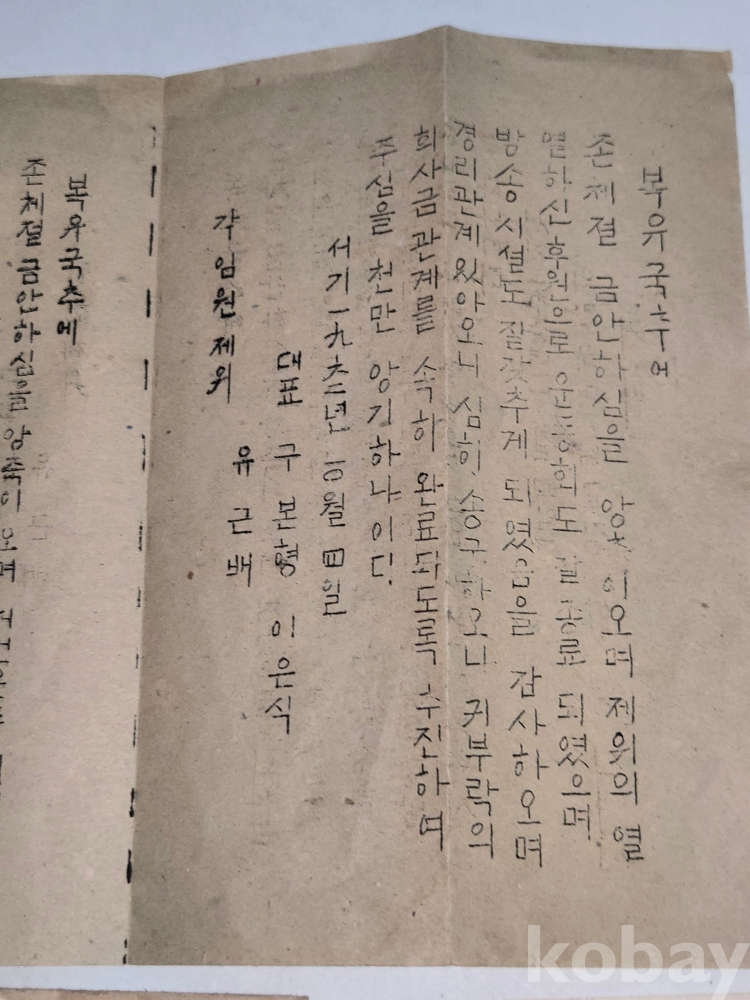 복유국추에
존체절 금안하심을 앙축이오며 제위의 열
열하신 후원으로 운동회도 잘 종료 되였으며
방송시설도 잘 갖추게 되였음을 감사하오며
경리관계 있아오니 심히 송구하오나 귀부락의
희사금 관계를 속히 완료되도록 추진하여
주심을 천만 앙기하나이다.
서기 一九六三년 十월 四일
대표 구본형 이은식
유근배
각 임원 제위
복유국추에
존체절 금안하심을 앙축이오며
kobay